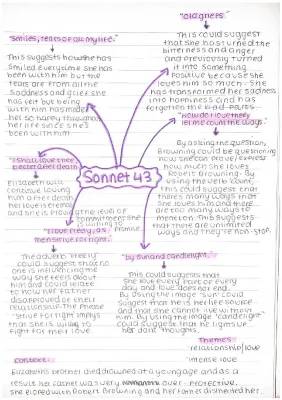 "old griefs"
This could suggest
that she has turned the
bitterness and anger
and previously turned
it into something
positive because she
loves him so much - she
has transformed her sadness
into happiness and has
forgotten the bad parts
"Smiles, tears of all my life."
This suggests how she has
smiled everytime she has
been with him but the
tears are from all the
saddness and grief she
has felt but being
with him has made
her so happy throughout
her life since she's
been with him
"How do I love thee?
let me count the ways."
By asking the question,
Browning could be questioning
how she can prove/express
how much she loves
Robert Browning. By
using the verb 'count'
this could suggest that
there's many ways that
she loves him and there
are too many ways to
mention. This suggests
that there are unlimited
ways and they're non-stop.
Sonnet 43
"I shall love thee
better after death"
Elizabeth will
continue loving
him after death
her love is eternal
and she is proving the level of
commitment she
is willing to
promise
"I love thee freely, as
men strive for right."
The adverb 'freely'
could suggest that no
one is influencing the
way she feels about
him and could relate
to how her father
disapproved of their
relationship. The phrase
'strive for right' implys
that she is willing to
fight for their love
"by sun and candlelight."
This could suggests that
she love every part of every
day and love does not end.
By using the image 'sun' could
suggest that he is her life source
and that she cannot live without
him. By using the image 'candlelight'
could suggest that he lights up
her dark thoughts.
Themes
relationship love
intense love
Context:
Elizabeths brother died drowned at a young age and as a
result her father was very over-protective.
She eloped with Robert Browning and her father disinherited her.